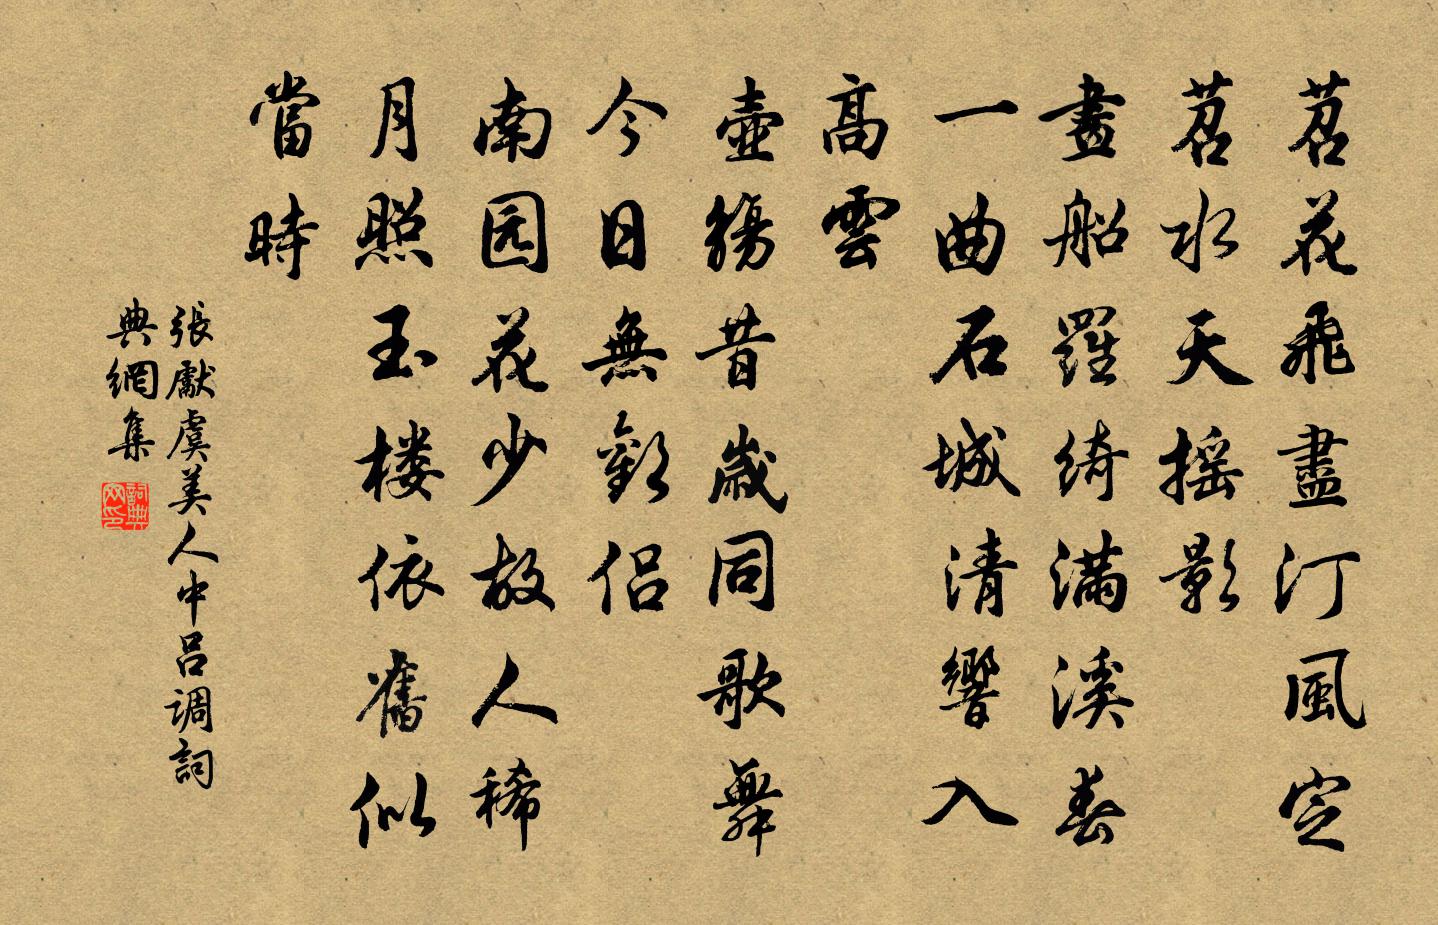 苕花飛盡汀風定
苕水天摇影
畫船羅綺滿溪春
一曲石城清響入
高雲
壺觴昔歲同歌舞
今日無歡侣
南园花少故人稀
月照玉楼依舊似
當時
張獻虞美人中呂调詞
典網集
詞典网印